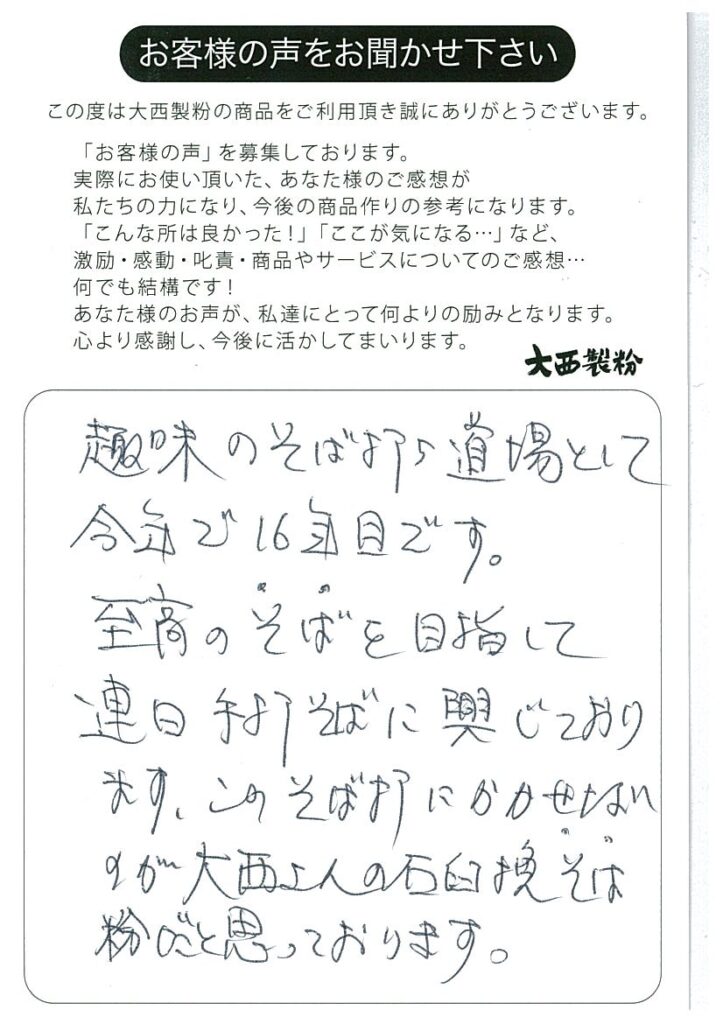 お客様の声をお聞かせ下さい
この度は大西製粉の商品をご利用頂き誠にありがとうございます。
「お客様の声」を募集しております。
実際にお使い頂いた、あなた様のご感想が
私たちの力になり、今後の商品作りの参考になります。
「こんな所は良かった！」「ここが気になる…」など、
激励・感動・叱責・商品やサービスについてのご感想…
何でも結構です！
あなた様のお声が、私達にとって何よりの励みとなります。
心より感謝し、今後に活かしてまいります。
大西製粉
趣味のそば打ち道場として
今年で16年目です。
至高のそばを目指して
連日手打そばに興じており
ます、このそば打にかかせない
のが大西さんの石臼挽そば
粉だと思っております。